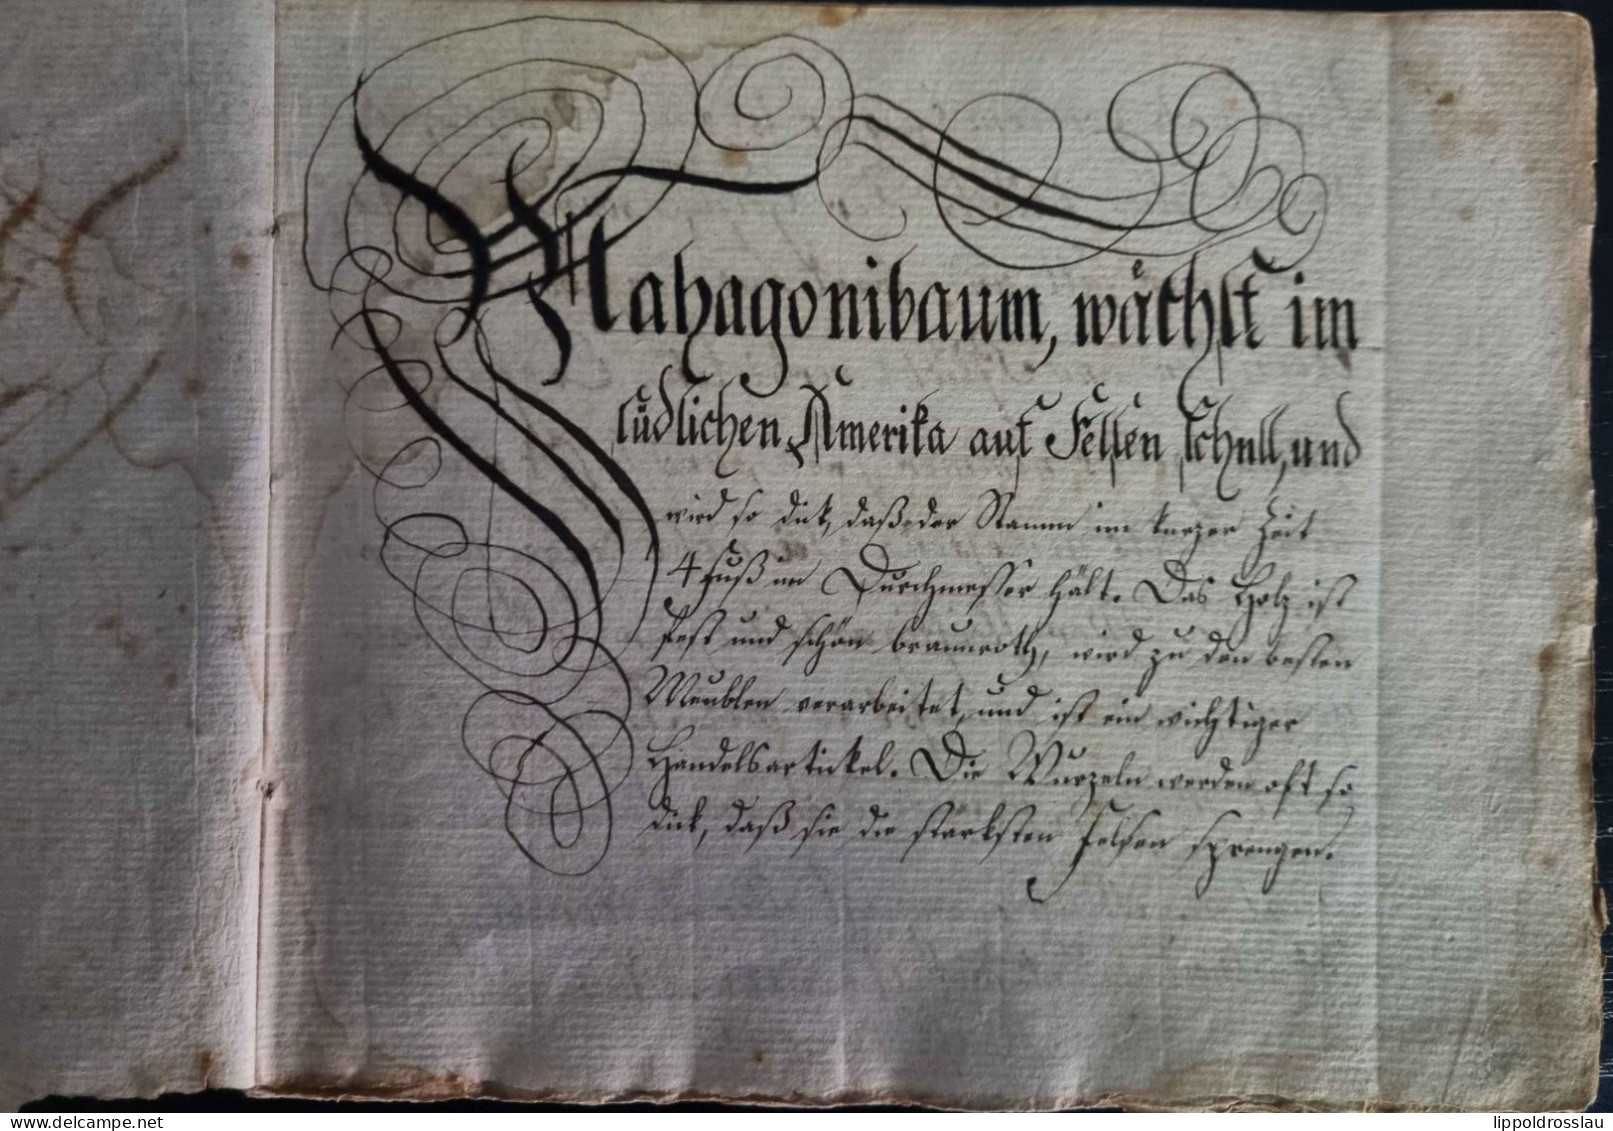 Mahagonibaum, wächst im
südlichen Amerika auf Felsen schnell, und
wird so dick, daß der Stamm in kurzer Zeit
4 Fuß im Durchmesser hält. Das Holz ist
fest und schön braunroth, wird zu den besten
Meublen verarbeitet, und ist ein wichtiger
Handelsartickel. Die Wurzeln werden oft so
dick, daß sie die stärksten Felsen sprengen.
www.delcampe.net
lippoldrosslau